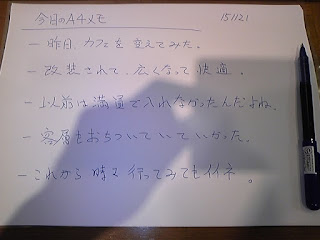 今日のA4メモ 151121
- 昨日、カフェを変えてみた。
- 改装されて、広くなって快適。
- 以前は満員で入れなかったんだよね。
- 客層もおちついていていかった。
- これから時々行ってみてもイイネ。